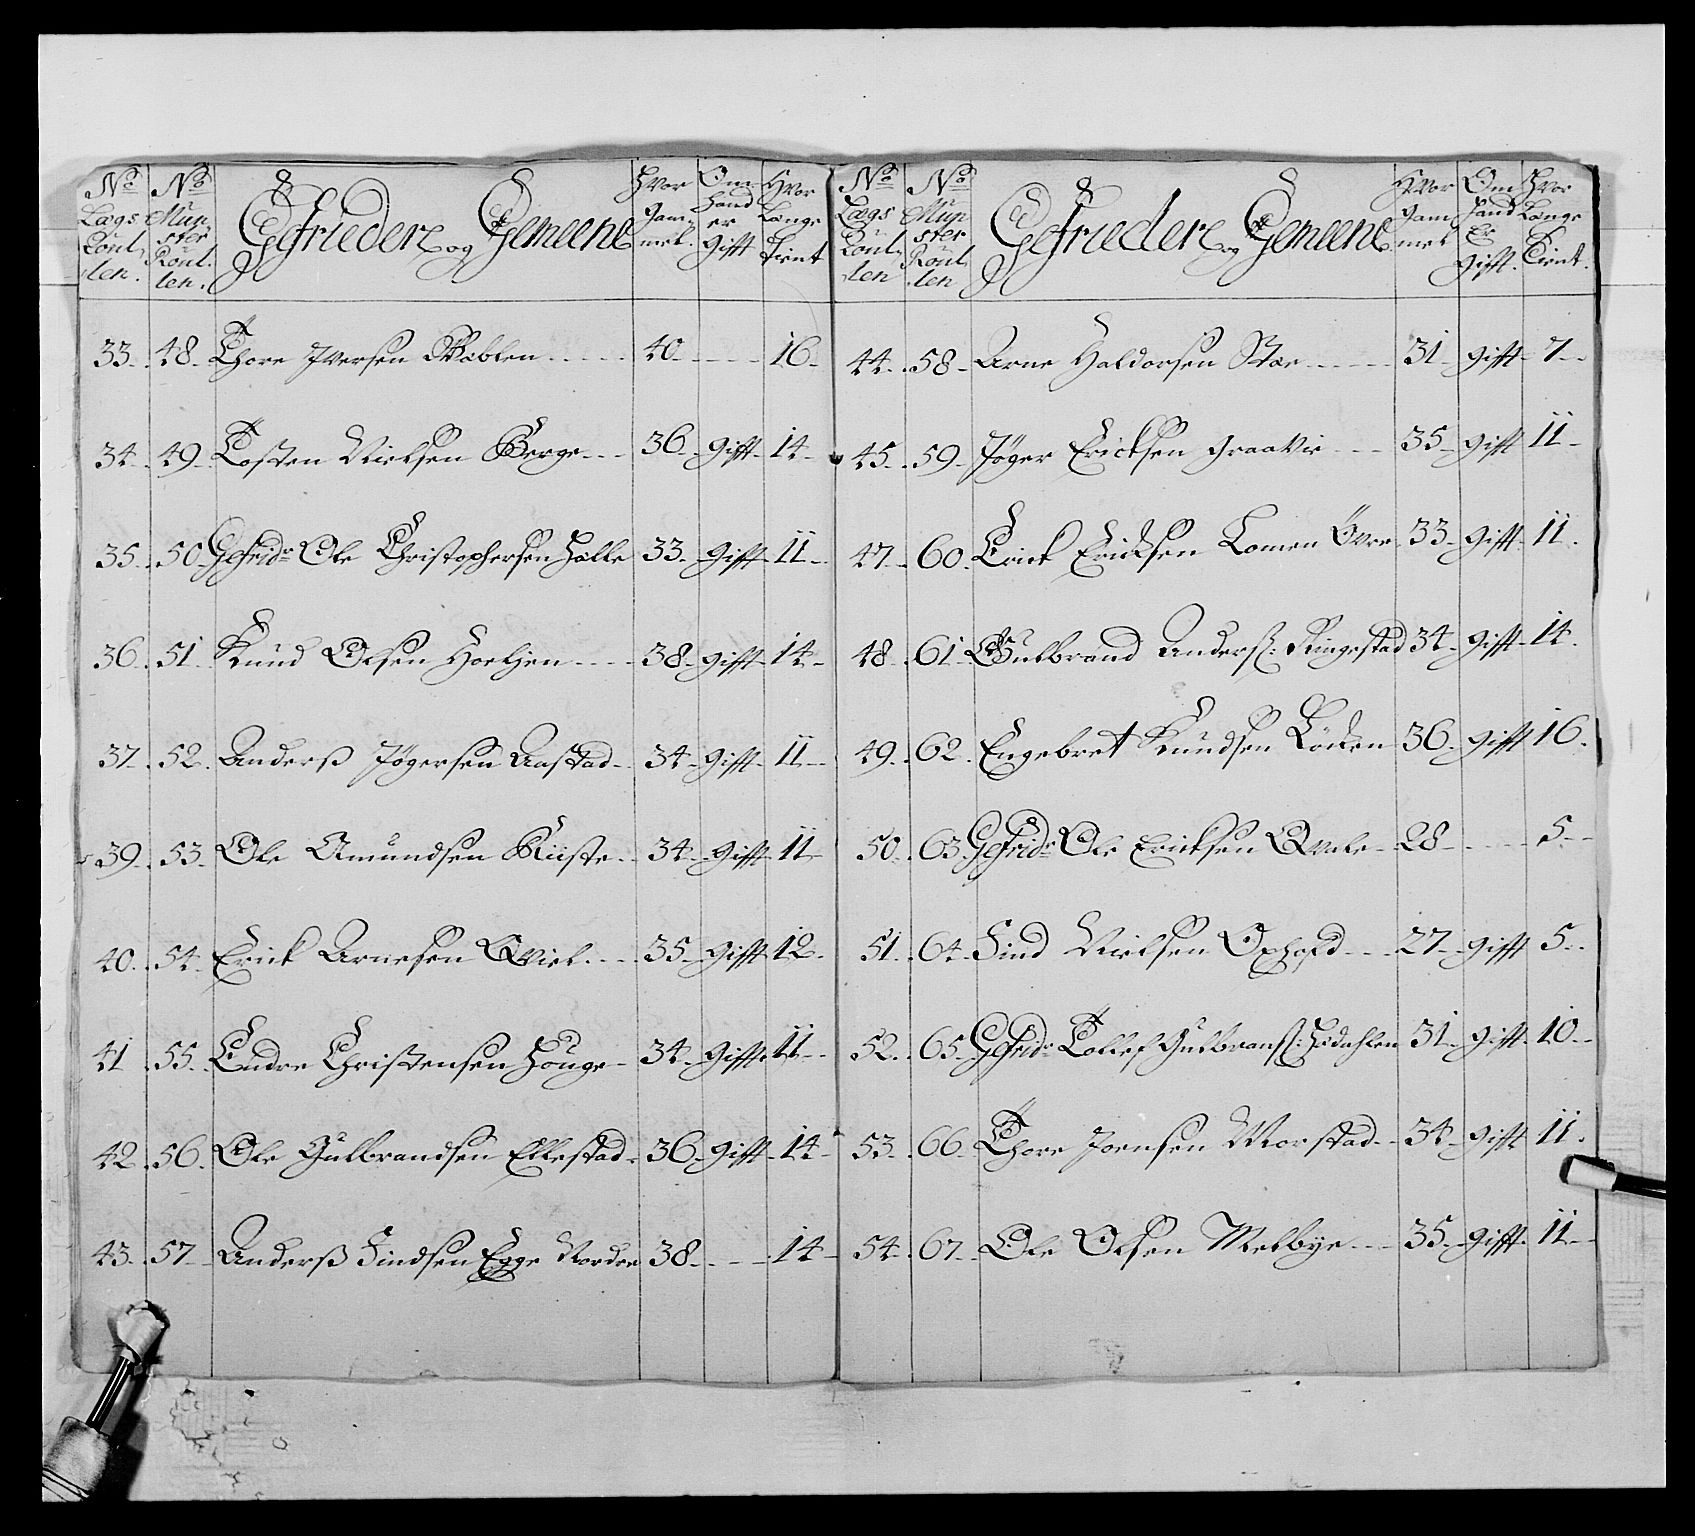 No Lægs Roul, len.
No Mun, ster Roul. len.
Gefriedere og Gemeene
Hvor Gam, mel.
Om hand er Gifft
Hvor Længe tient
33. 48. Thore Iversen 40. 16.
34. 49. Tosten Nielsen Berge 36. gifft 14
35. 50. Gefridr Ole Christophersen Hælle 33. gifft 11
36. 51. Knud Olsen 38. gifft 14
37. 52. Anderß Jøgersen Aastad 34. gifft 11
39. 53. Ole Amundsen Riiste 34. gifft 11
40. 54. Erick Arnesen Qviel 35. gifft 12.
41 55. Endre Christensen Houge 34. gifft 11
42. 56. Ole Gulbrandsen Ellestad 36. gifft 14
43. 57 Anderß Findsen Egge Nordre 38. 14
No Lægs Roul, len
No Mun ster Roul, len
Gefriedere og Gemeene
Hvor Gam mel
Om hand Er Gifft.
Hvor Længe tient.
44. 58. Arne Haldorsen 31. gifft 7
45. 59. Jøger Ericksen 35. gifft 11
47. 60. Erick Ericksen Lomen Øvre 33. gifft 11.
48. 61. Gulbrand Anderß: Ringestad 34. gifft 14.
49. 62. Engebret Knudsen Løcken 36. gifft 16.
50. 63. Gefridr Ole Ericksen Qvale 28 5.
51. 64. Find Nielsen Oxhofd 27 gifft 5.
52. 65. Gefridr Tollef Gulbransß: Hødahlen 31 gifft 10.
53. 66. Thore Joensen Morstad 34. gifft 11.
54. 67. Ole Olsen Melbye 35. gifft 11